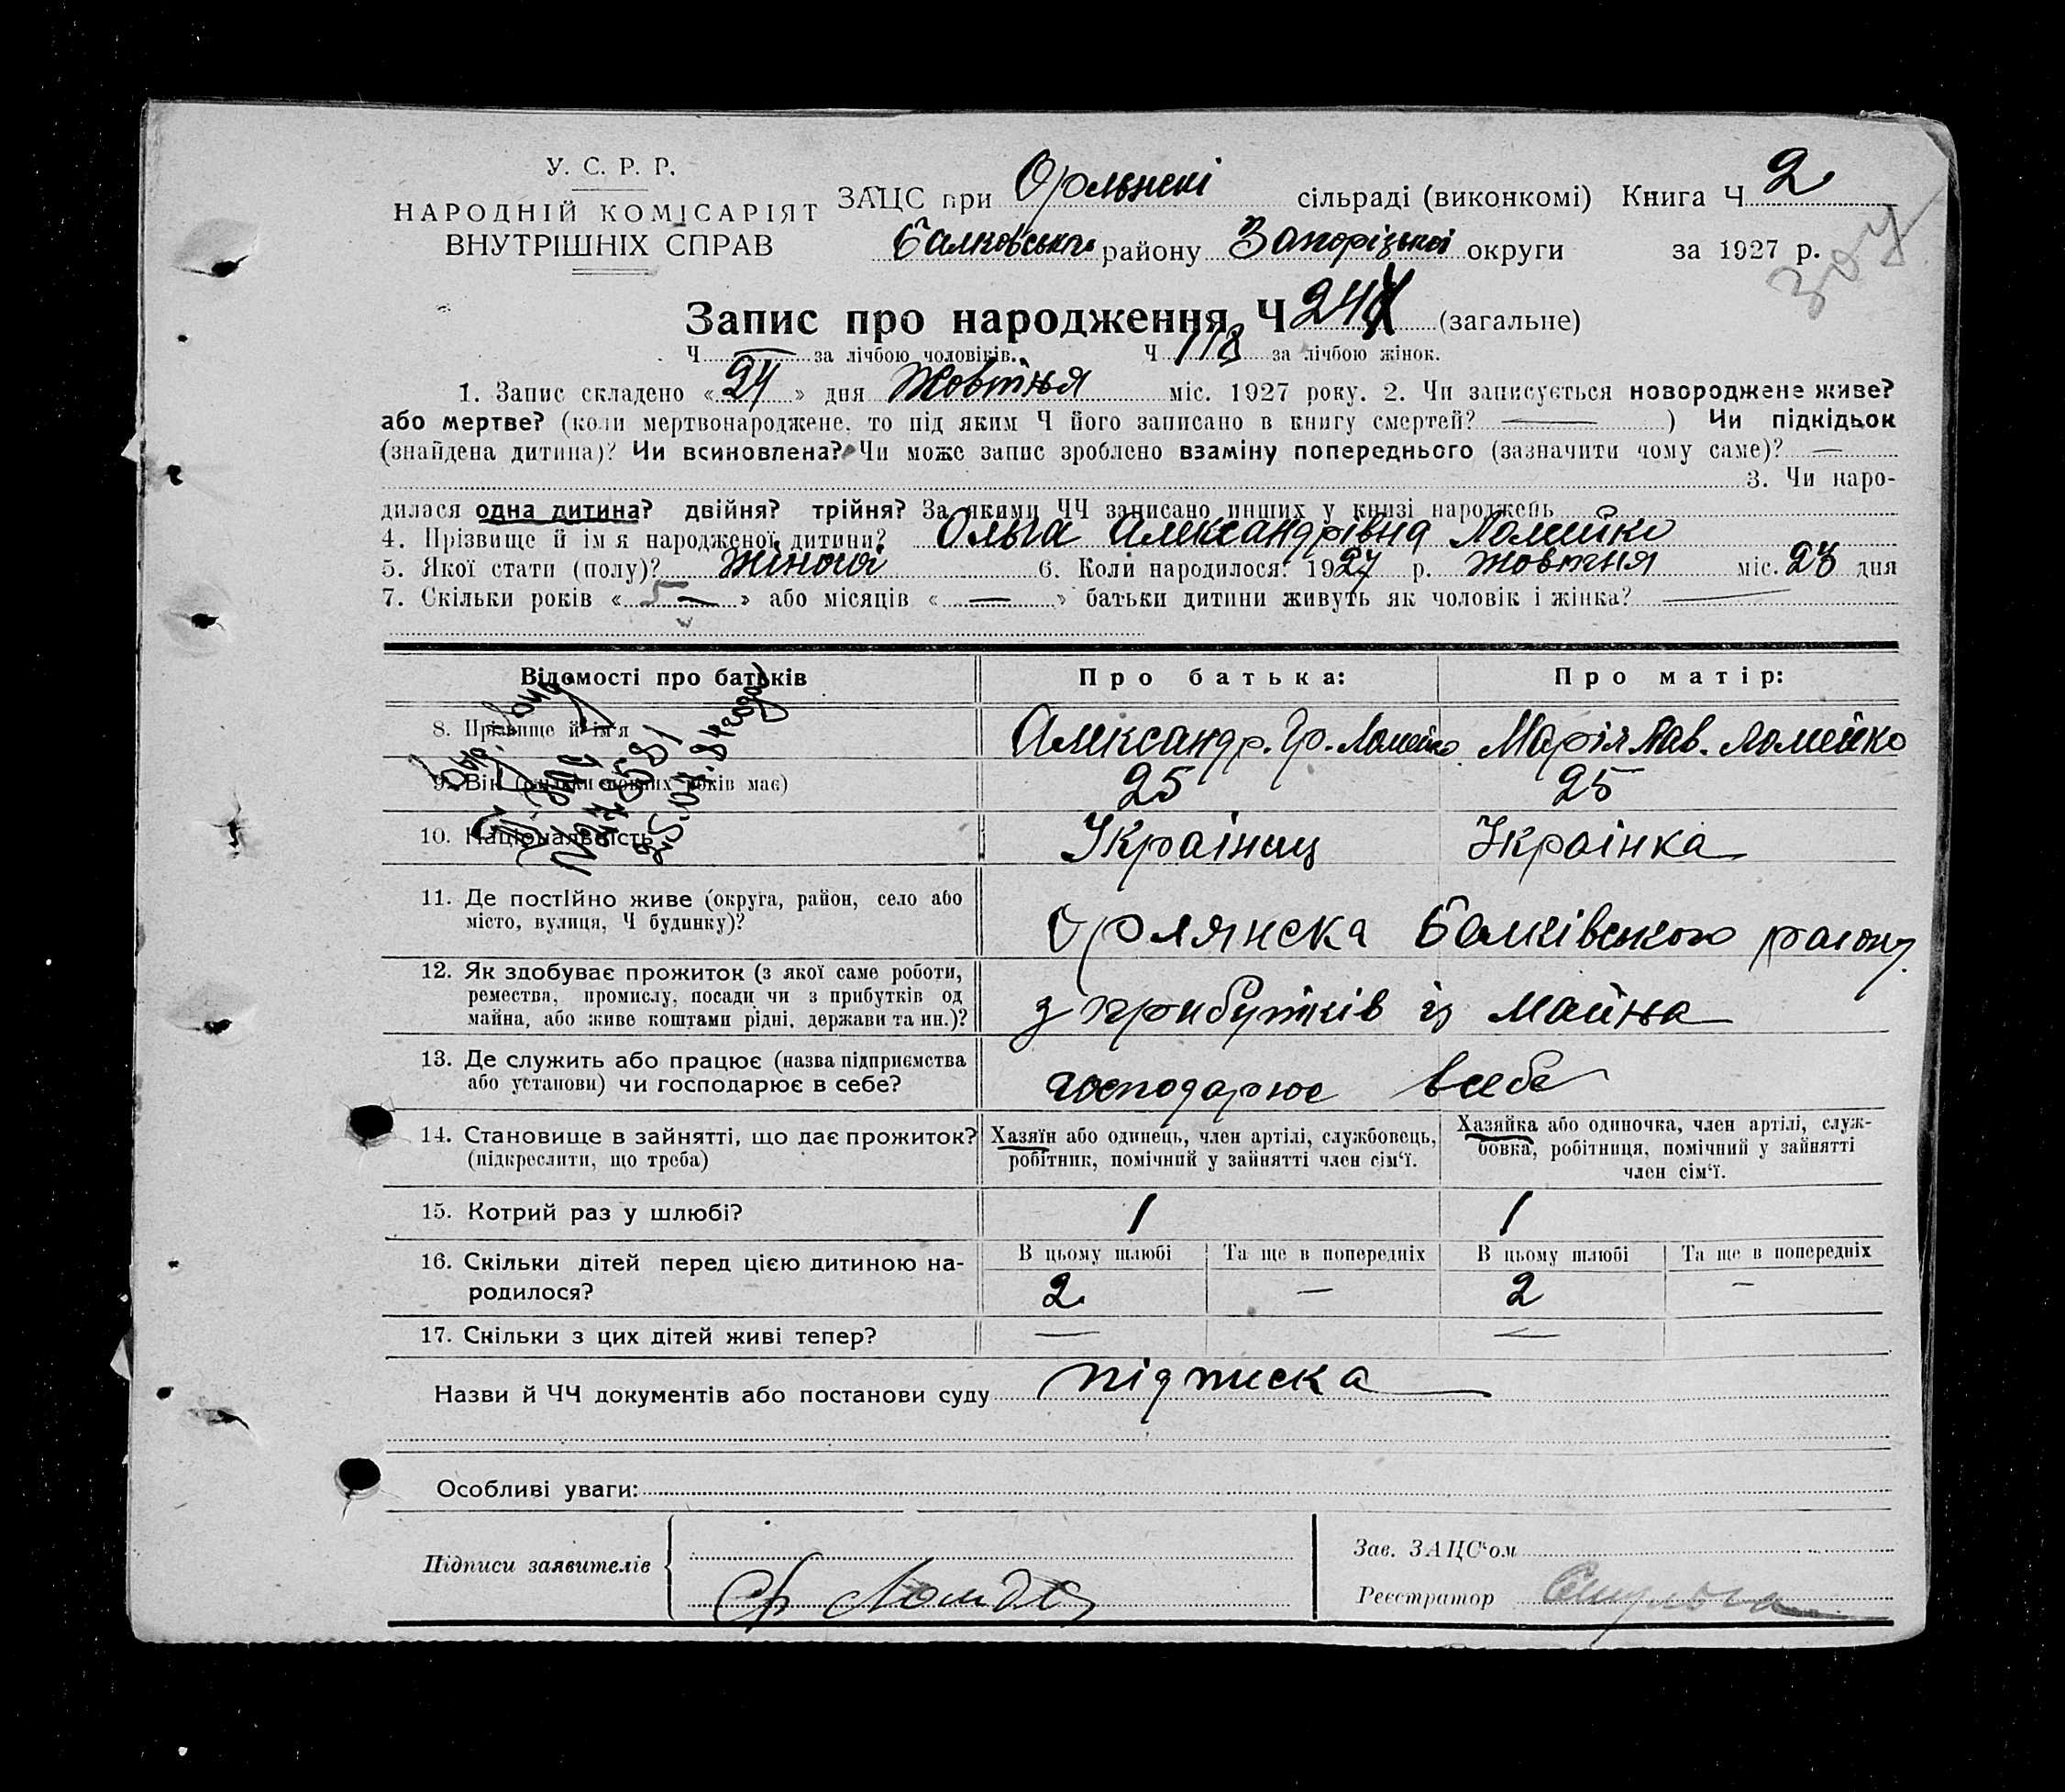 У. С. Р. Р.
НАРОДНІЙ КОМІСАРІЯТ
ВНУТРІШНІХ СПРАВ
ЗАЦС при Орлянскі сільраді (виконкомі) Книга Ч 2
Балковського району Запорізької округи за 1927 р.
Запис про народження Ч 24 (загальне)
Ч — за лічбою чоловіків. Ч 118 за лічбою жінок.
1. Запис складено « 24 » дня Жовтня міс. 1927 року. 2. Чи записується новороджене живе?
або мертве? (коли мертвонароджене, то під яким Ч його записано в книгу смертей? — ) Чи підкідьок
(знайдена дитина)? Чи всиновлена? Чи може запис зроблено взаміну попереднього (зазначити чому саме)? —
3. Чи наро-
дилася одна дитина? двійня? трійня? За якими ЧЧ записано инших у книзі народжень
4. Прізвище й ім'я народженої дитини? Ольга Александрівна Ломейко
5. Якої стати (полу)? Жіночої 6. Коли народилося? 1927 р. жовтня міс. 23 дня
7. Скільки років « — » або місяців « — » батьки дитини живуть як чоловік і жінка? —
Відомості про батьків Про батька: Про матір:
8. Прізвище й ім'я Александр. Гр. Ломейко Марія Пав. Ломейко
9. Вік (скільки повних років має) 25 25
10. Національність Українець Українка
11. Де постІйно живе (округа, район, село або
місто, вулиця, Ч будинку)?
Орлянска Балківського району
12. Як здобуває прожиток (з якої саме роботи,
ремества, промислу, посади чи з прибутків од
майна, або живе коштами рідні, держави та ин.)?
з прибутків із майна
13. Де служить або працює (назва підприємства
або установи) чи господарює в себе?
господарює всебе
14. Становище в зайнятті, що дає прожиток?
(підкреслити, що треба)
Хазяїн або одинець, член артілі, службовець,
робітник, помічний у зайнятті член сім'ї.
Хазяйка або одиночка, член артілі, служ-
бовка, робітниця, помічний у зайнятті
член сім'ї.
15. Котрий раз у шлюбі? 1 1
16. Скільки дітей перед цією дитиною на-
родилося?
В цьому шлюбі Та ще в попередніх В цьому шлюбі Та ще в попередніх
2 — 2 —
17. Скільки з цих дітей живі тепер? — —
Назви й ЧЧ документів або постанови суду підписка
Особливі уваги:
Підписи заявителів
Зав. ЗАЦС'ом
Реєстратор